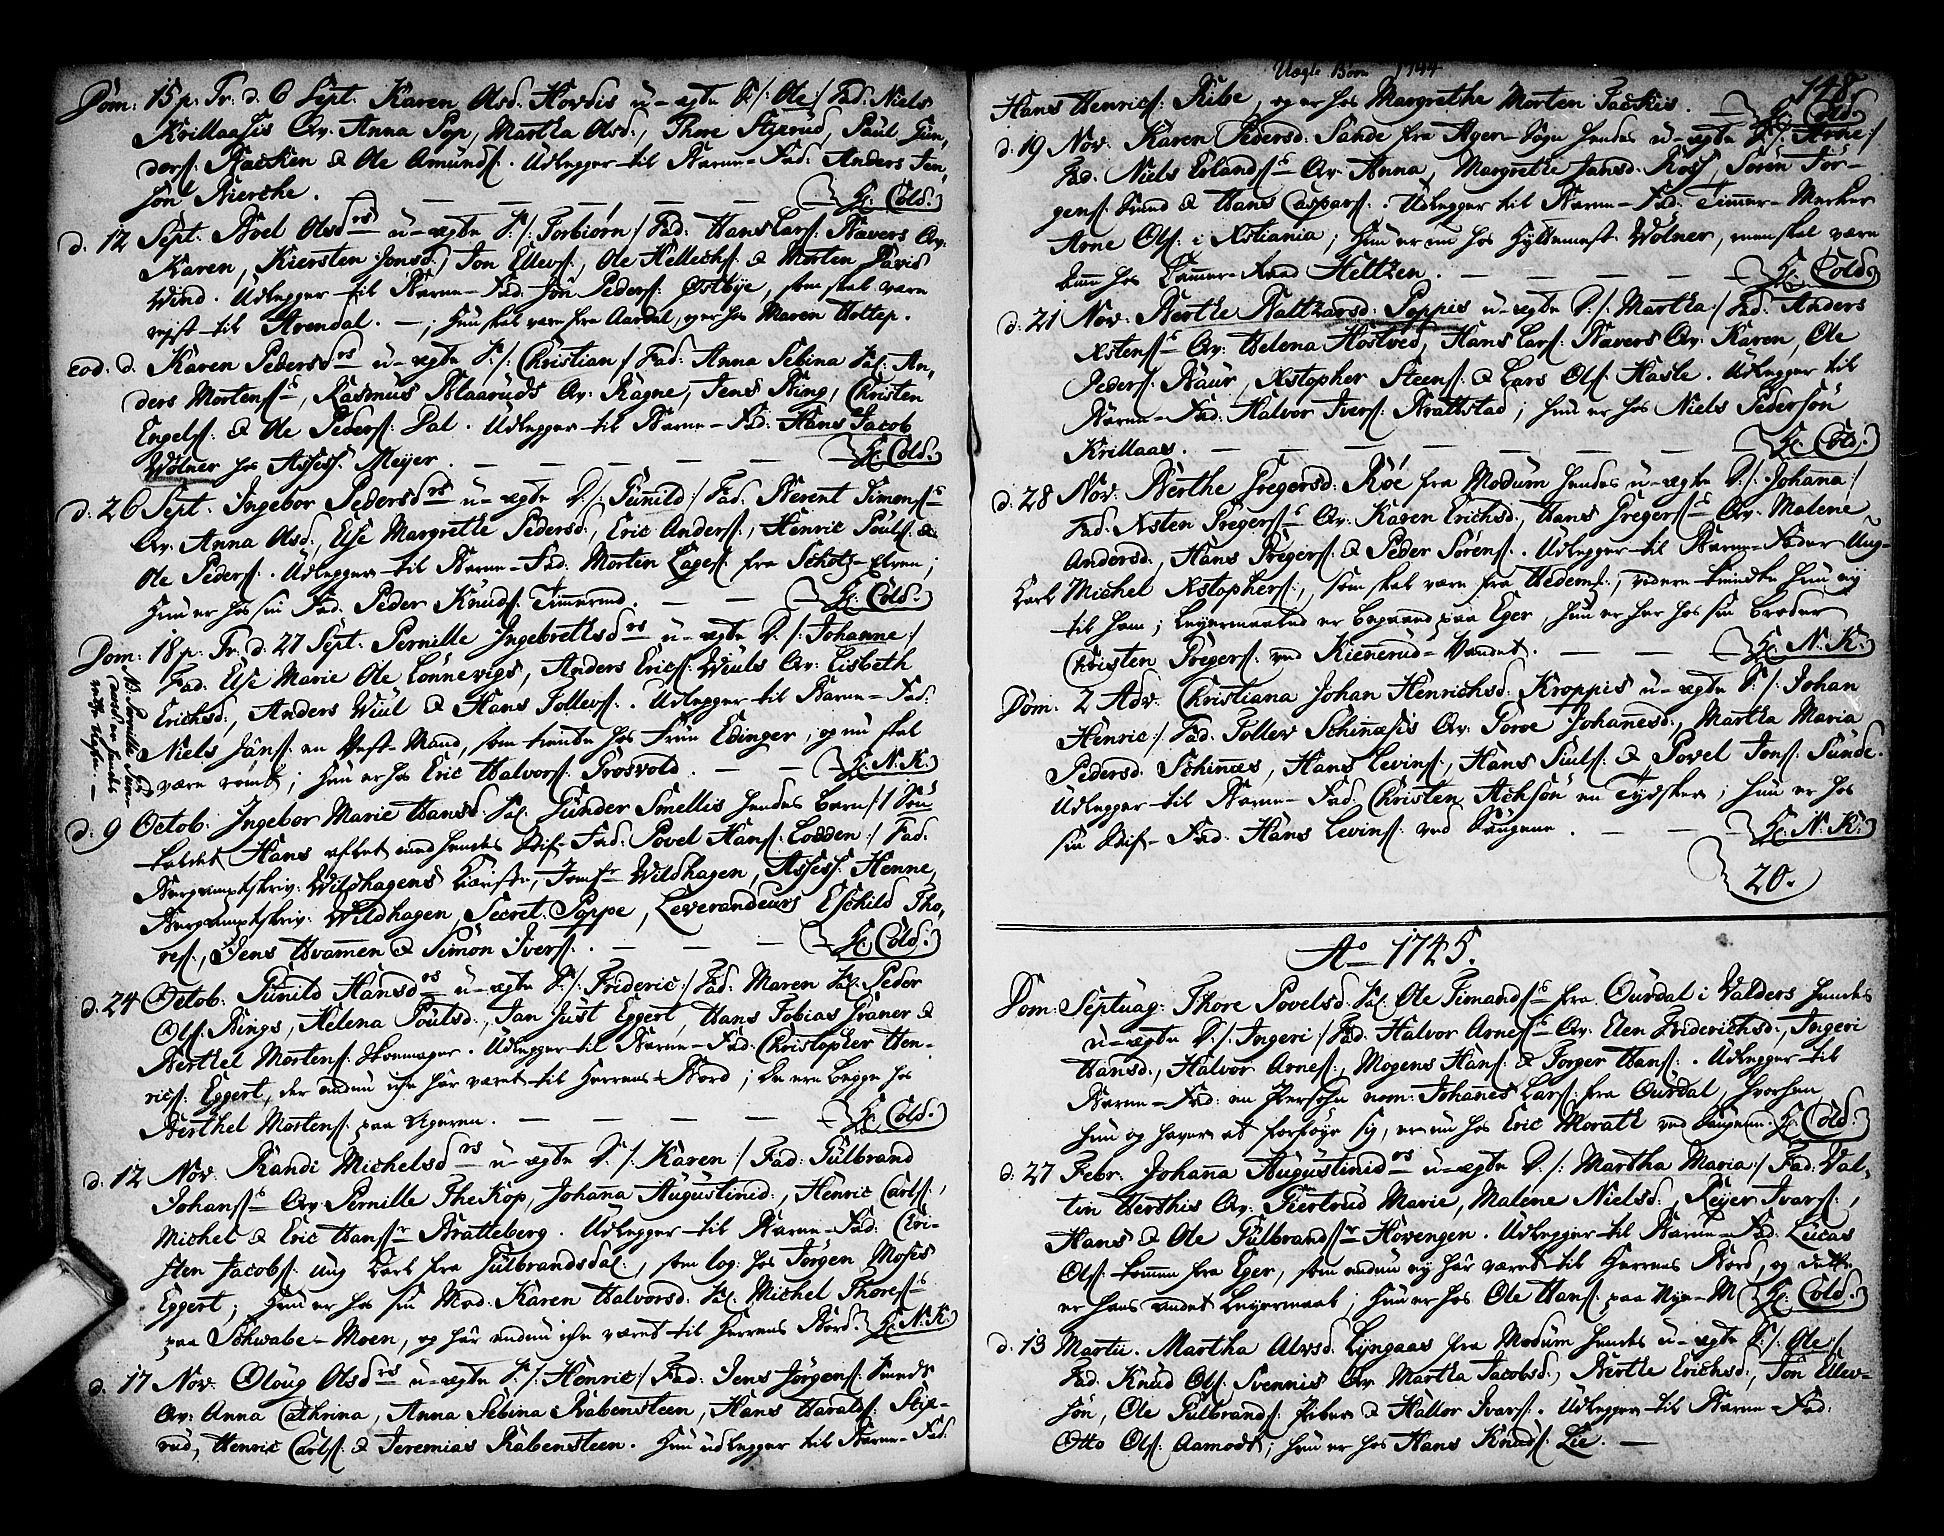 Dom: 15 p. Tr. d. 6 Sept. Karen Olsd. Hovdis u-ægte S./: Ole :/ Fad: Niels
Krillaasis Qv. Anna Pop, Martha Olsd., Thore Stixrud, Paul Gun,
ders: Backen & Ole Amunds: . Udlegger til Barne-Fad: Anders Jen,
son Bierche.
H. Cold.
d. 12 Sept. Boel Olsdrs u-ægte S./: Torbiørn :/ Fad: Hans Lars: Bævers Qv.
Karen, Kiersten Jonsd., Jon Ellevs:, Ole Hellechs: & Morten Davis
Wind. Udlegger til Barne-Fad: Jon Peders: Østbÿe, som skal være
rejst til Arendal. ; Hun skal være fra Aardal, og er hos Maren Holtep.
eod. d. Karen Pedersdrs u-ægte S./: Christian :/ Fad: Anna Sebina Sal. An,
ders Mortens:, Rasmus Blaaruds Qv. Ragne, Jens Bing, Christen
Engels: & Ole Peders: Dal. Udlegger til Barne-Fad: Hans Jacob
Wølner hos Assess: Meÿer.
H. Cold.
d. 26 Sept. Ingebor Pedersdrs u-ægte D./: Gunild :/ Fad. Berent Simons:
Qv. Anna Olsd., Else Margrethe Pedersd., Eric Anders:, Henric Pouls: &
Ole Peders: . Udlegger til Barne-Fad: Morten Lages: fra Schotz-Elven;
Hun er hos sin Fad. Peder Knuds: Timmermd.
H. Cold.
Dom: 18 p. Tr. d. 27 Sept. Pernille Ingebrethsdrs u-ægte D./: Johanne :/
Fad. Else Marie Ole Lønnevigs, Anders Erics: Wiuls Qv. Lisbeth
Erichsd., Anders Wiul & Hans Tollevs: . Udlegger til Barne-Fad:
Niels Jans: en Best-Mand, som tiente hos Frue Edinger, og nu skal
være rømt; Hun er hos Eric Halvors: Grosvold.
H. N. K.
d. 9 Octob. Ingebor Marie Hansd. Sal. Gunder Smellis hendes barn /: 1 Søn
kaldet Hans avlet med hendes Stif-Fad. Povel Hans: Lodden :/ Fad.
Bergamptskriv. Wildhagens Kiæreste, Jomfr Wildhagen, Assess: Henne,
Bergamptskriv. Wildhagen, Secret. Poppe, Leverandeurs Eschild Tho,
res:, Jens Hvamen & Simon Ivers: .
H. Cold.
d. 24 Octob. Gunild Hansdrs u-ægte S./: Frideric :/ Fad. Maren Sal. Peder
Ols: Bings, Helena Poulsd., Jan Just Eggert, Hans Tobias Graner &
Berthel Mortens: Skoemager. Udlegger til Barne-Fad. Christopher Hen-
rics: Eggert, der endnu icke har været til Herrens-Bord; De ere begge hos
Berthel Mortens: paa Ageren.
H. Cold.
d. 12 Nov. Randi Michelsdrs u-ægte D./: Karen :/ Fad: Gulbrand
Johans: Qv. Pernille TheKop, Johanna Augustinid., Henric Carls:,
Michel & Eric Hans: Bratteberg. Udlegger til Barne-Fad. Chri-
sten Jacobs: ung Karl fra Gulbrandsdal., som log: hos Jørgen Moses
Eggert; Hun er hos sin Mod. Karen Halvorsd. Sal. Michel Thores:
paa Schwabe-Moen, og har endnu icke været til Herrens Bord. H. N. K.
d. 17 Nov. Oloug Olsdrs u-ægte S./: Henric :/ Fad. Jens Jørgens: Sunds
Qv. Anna Cathrina, Anna Sebina Rabensteen, Hans Haralds: Stix-
rud, Henric Carls: & Jeremias Rabensteen. Hun udlegger til Barne-Fad.
Uægte Børn 1744
148.
Hans Henrics: Ribe, og er hos Margrethe Morten Jackis.
H. Cold.
d. 19 Nov. Karen Pedersd. Sande fra Ager-Sogn hendes u-ægte S./: Arne :/
Fad. Niels Erlands: Qv. Anna, Margrethe Jansd. Ross, Søren Jør-
gens: Sund & Hans Caspars: . Udlegger til Barne-Fad. Timmer-Mercker
Arne Ols: i Xstiania; Hun er nu hos Hÿttemest: Wølner, men skal være
hos Cammer-Raad Heltzen.
H. Cold.
d. 21 Nov. Berthe Balthzarsd. Poppis u-ægte D./: Martha :/ Fad. Anders
Xstens: Qv. Helena Hostved, Hans Lars: Bævers Qv. Karen, Ole
Peders: Baur, Xstopher Steens: & Lars Ols: Hasle. Udlegger til
Barne-Fad. Halvor Ivers: Brattstad; Hun er hos Niels Pedersøn
Krillaas.
H. Cold.
d. 28 Nov. Berthe Gregersd. Røe fra Modum hendes u-ægte D./: Johanna :/
Fad. Xsten Gregers: Qv. Karen Erichsd., Hans Gregers: Qv. Malene
Andersd., Hans Gregers: & Peder Sørens: . Udlegger til Barne-Fader Ung-
Karl Michel Xstophers:, som skal være fra Hedem:, videre kiendte hun ey
til ham; Leyermaalet er begaaed paa Eger, hun er her hos sin broder
Christen Gregers: ved Kiennerud-Vandet.
H. N. K.
Dom. 2 Adv. Christiana Johan Henrichsd. Kroppis u-ægte S./: Johan
Henric :/ Fad. Tollev Schinæsis Qv. Goroe Johannesd., Martha Maria
Pedersd. Schinæs, Hans Levins:, Hans Siuls: & Povel Jons: Sunde.
Udlegger til Barne-Fad. Christen Achsøn en Tydsker; hun er hos
sin Stif-Fad. Hans Levins: ved Saugene.
H. N. K.
20.
Ao 1745.
Dom: Septuag: Thore Povelsd. Sal. Ole Simands: fra Ourdal i Valders hendes
u-ægte D./: Ingeri :/ Fad. Halvor Arnes: Qv. Elen Friderichsd., Ingeri
Hansd., Halvor Arnes:, Mogens Hans: & Torger Hans: . Udlegger til
Barne-Fad. en Persohn nom: Johannes Lars: fra Ourdal, hvorhen
hun og haver at forføye sig, er nu hos Eric Morath ved Saugene. H. Cold.
d. 27 Febr. Johanna Augustinidrs u-ægte D./: Martha Maria :/ Fad. Val,
tin Herthis Qv. Giertrud Marie, Malene Nielsd., Reÿer Ivars:,
Hans & Ole Gulbrands: Hovengen. Udlegger til Barne-Fad. Lucas
Ols: kommen fra Eger, som endnu ey har været til Herrens Bord, og dette
er hans andet Leyermaal; Hun er hos Ole Hans: paa Nye-M H. Cold.
d. 13 Martii. Martha Alvsd. Lyngaas fra Modum hendes u-ægte S./: Ole :/
Fad. Knud Ols: Svennis Qv. Martha Jacobsd., Berthe Erichsd., Jon Ellev-
søn, Ole Gulbrands: Piber & Hallor Ivars: . Udlegger til Barne-Fad:
Otto Ols: Aamodt; hun er hos Hans Knuds: Lie.